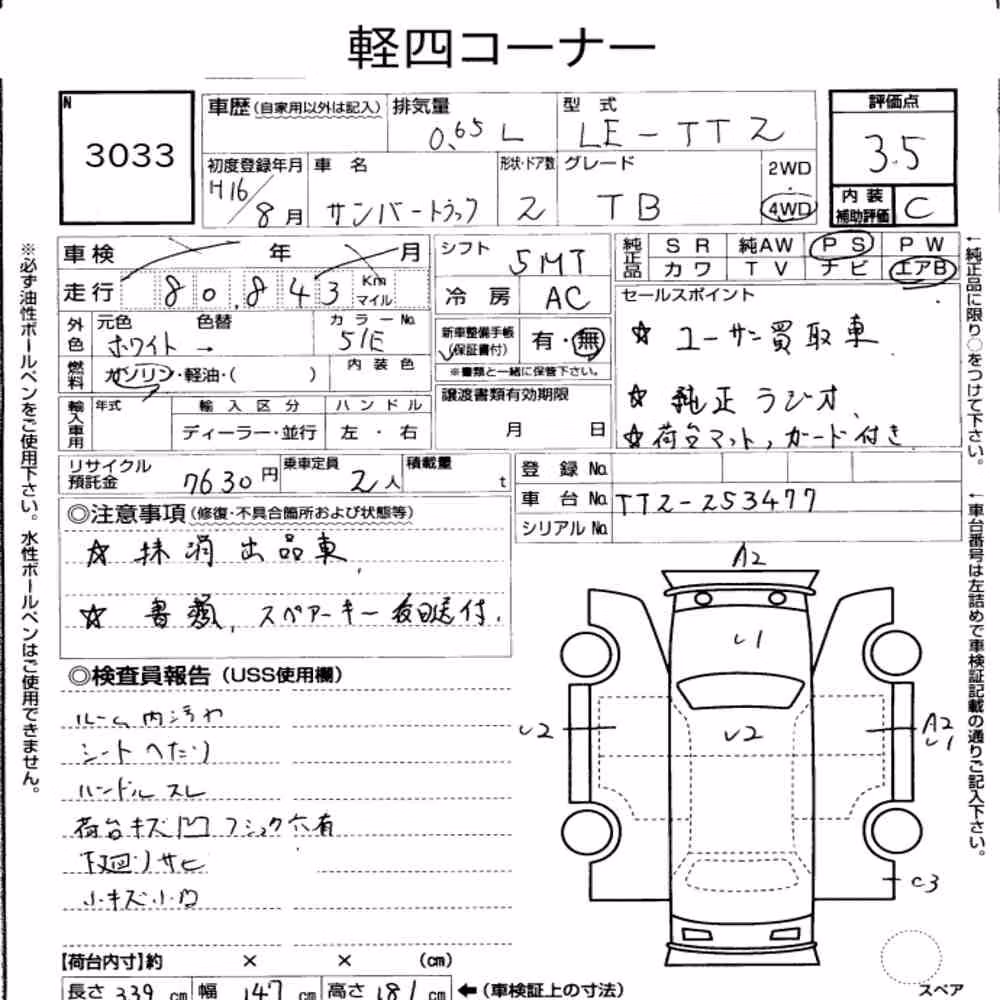 軽四コーナー
N
3033
車歴(自家用以外は記入)
排気量
0.65 L
型式
LE-TT2
評価点
3.5
初度登録年月
H16/8月
車名
サンバートラック
形状・ドア数
2
グレード
TB
2WD
・
4WD
内装
補助評価
C
車検 年 月
走行 80.843 Km マイル
シフト
5MT
冷房 AC
純正品
SR 純AW PS PW
カワ TV ナビ エアB
外色
元色 色替
ホワイト →
カラーNo
51E
燃料
ガソリン・軽油・( )
内装色
新車整備手帳
(保証書付)
有・無
※書類と一緒に保管下さい。
セールスポイント
☆ ユーザー買取車
☆ 純正ラジオ、
☆荷台マット,ガード付き
輸入車用
年式
輸入区分
ディーラー・並行
ハンドル
左・右
譲渡書類有効期限
月 日
リサイクル
預託金
7630円
乗車定員
2人
積載量
t
登録No.
車台No. TT2-253477
シリアルNo.
◎注意事項(修復・不具合箇所および状態等)
☆ 抹消出品車、
☆ 書類、スペアーキー後日送付.
◎検査員報告(USS使用欄)
ルーム内汚れ
シートへたり
ハンドルスレ
荷台キズ凹フショク穴有
下廻りサビ
小キズ小凹
A2
U1
U2
U2
A2
U1
C3
スペア
【荷台内寸】約 × × (cm)
長さ 339 cm 幅 147 cm 高さ 181 cm ←(車検証上の寸法)
※必ず油性ボールペンをご使用下さい。水性ボールペンはご使用できません。
←純正品に限り○をつけて下さい。
←車台番号は左詰めで車検証記載の通りご記入下さい。